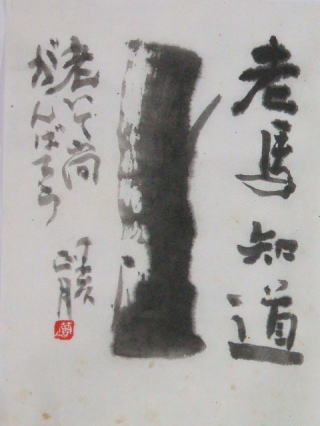 老馬知道
老いて尚
がんばろう
丁亥
正月